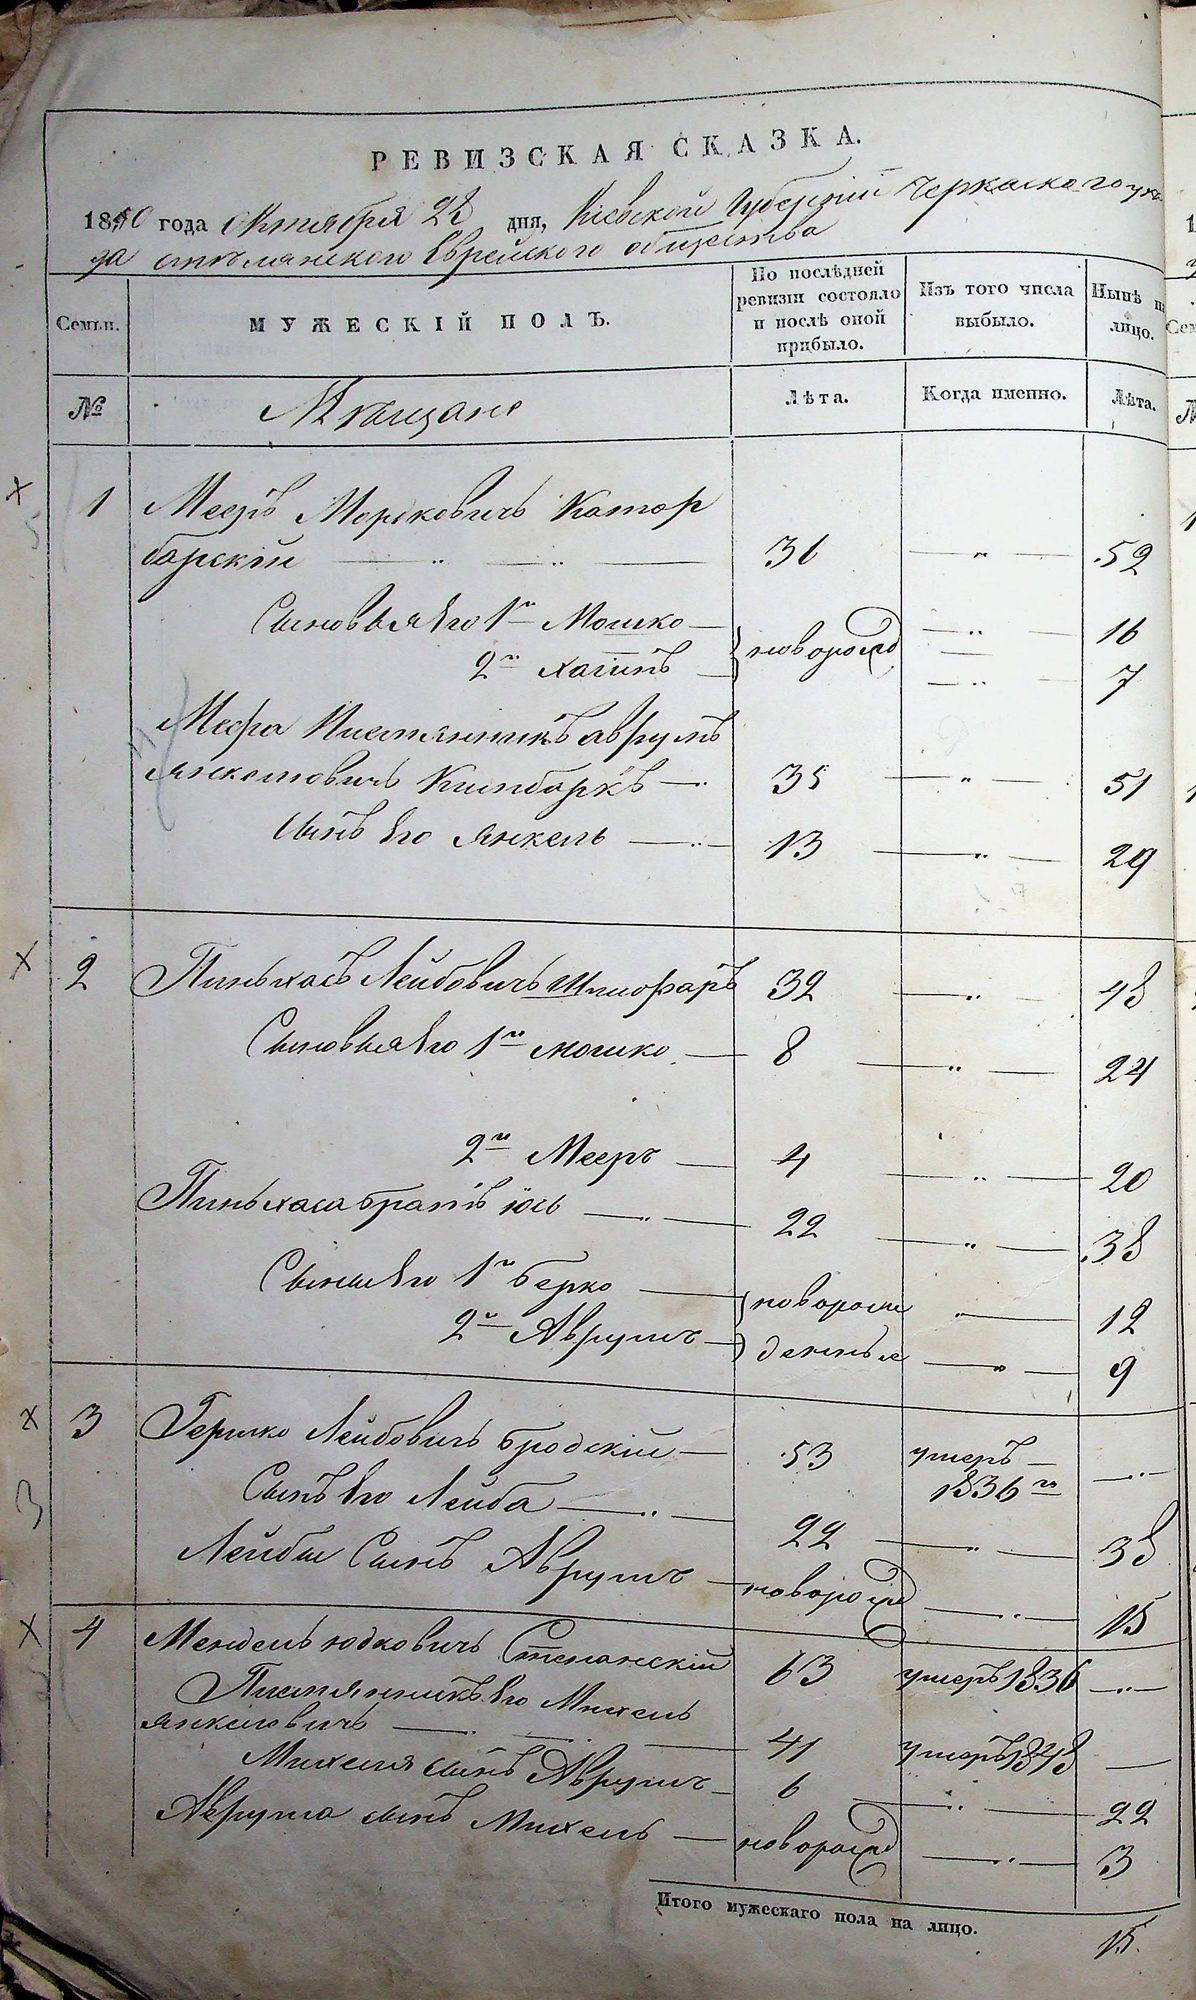 РЕВИЗСКАЯ СКАЗКА.
1850 года Октября 28 дня, Кіевской Губерніи Черкаского уез
да смѣлянского Еврейского общества
Семьи. МУЖЕСКІЙ ПОЛЪ. По послѣдней ревизіи состояло и послѣ оной прибыло. Изъ того числа выбыло. Нынѣ на лицо.
№ Мѣщане Лѣта. Когда именно. Лѣта.
1 Мееръ Моршковичъ Катер
барскій 36 „ 52
Сыновья Его 1й Мошко новорожд „ 16
2й хаимъ „ 7
Меера Племянникъ аврумъ
янкелевичъ Кимбаркъ 35 „ 51
сынъ Его янкель 13 „ 29
2 Пиньхасъ Лейбовичъ Шпиофаръ 32 „ 48
Сыновья Его 1й мошко 8 „ 24
2й Мееръ 4 „ 20
Пиньхаса братъ іось 22 „ 38
Сыны Его 1й берко новорож „ 12
2й Аврумъ денные „ 9
3 Гершко Лейбовичъ бродскій 53 умеръ
1836 го
Сынъ Его Лейба 22 „ 38
Лейбы Сынъ Аврумъ новорожд „ 15
4 Мендель юдковичъ Степанскій 63 умеръ 1836
Племянникъ Его Михель
янкелевичъ 41 умеръ 1848
Михеля сынъ Аврумъ 6 „ 22
Аврума сынъ Михель новорожд „ 3
Итого мужескаго пола на лицо. 15.